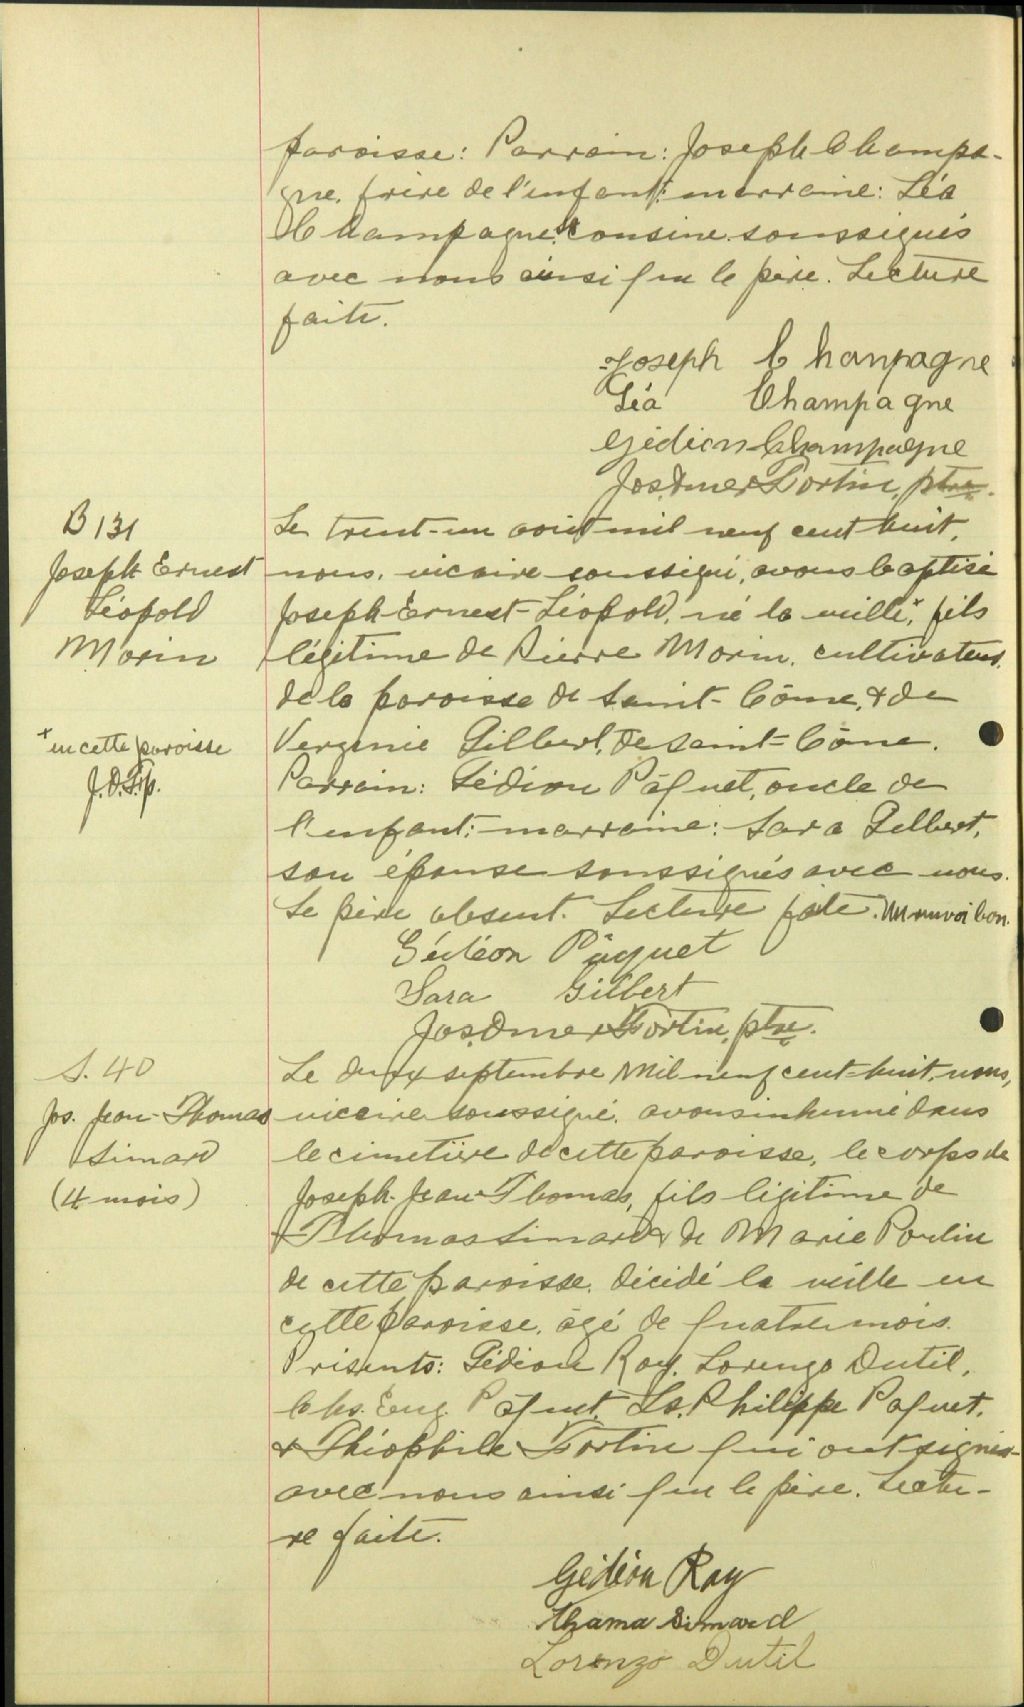 paroisse: Parrain: Joseph Champa-
gne, frère de l'enfant: marraine: Léa
Champagne, cousine soussignés
avec nous ainsi que le père. Lecture
faite.
Joseph Champagne
Léa Champagne
Gédéon Champagne
Jos. Omer Fortin, ptre.
B 131
Joseph Ernest
Léopold
Morin
Le trent-un août mil neuf cent huit,
nous, vicaire soussigné, avons baptisé
Joseph-Ernest-Léopold, né la veille,x fils
légitime de Pierre Morin, cultivateur,
de la paroisse de Saint-Côme, & de
x en cette paroisse
J.O.F.p.
Verginie Gilbert, de Saint-Côme.
Parrain: Gédéon Pâquet, oncle de
l'enfant: marraine: Sara Gilbert,
son épouse soussignés avec nous.
Le père absent. Lecture faite. Un renvoi bon.
Gédéon Pâquet
Sara Gilbert
Jos. Omer Fortin, ptre.
S. 40
Jos. Jean-Thomas
Simard
(4 mois)
Le deux septembre mil neuf cent-huit, nous,
vicaire soussigné, avons inhumé dans
le cimetière de cette paroisse, le corps de
Joseph-Jean-Thomas, fils légitime de
Thomas Simard & de Marie Poulin
de cette paroisse, décédé la veille en
cette paroisse, âgé de quatre mois.
Présents: Gédéon Roy, Lorenzo Dutil,
Chs. Eug. Pâquet, Ls. Philippe Paquet,
& Théophile Fortin qui ont signés
avec nous ainsi que le père. Lectu-
re faite.
Gédéon Roy
Thama Simard
Lorenzo Dutil